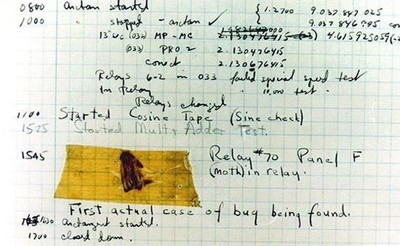 0800 Antan started
1000 " stopped - antan ✓ { 1.2700 9.037 847 025
9.037 846 795 correct
13"uc (033) MP - MC 2.130476415 4.615925059(-2)
(033) PRO 2 2.130476415
correct 2.130676415
Relays 6-2 in 033 failed special speed test
in relay " 10.000 test.
Relays changed
1100 Started Cosine Tape (Sine check)
1525 Started Mult + Adder Test.
1545 Relay #70 Panel F
(moth) in relay.
First actual case of bug being found.
1630 antangent started.
1700 closed down.